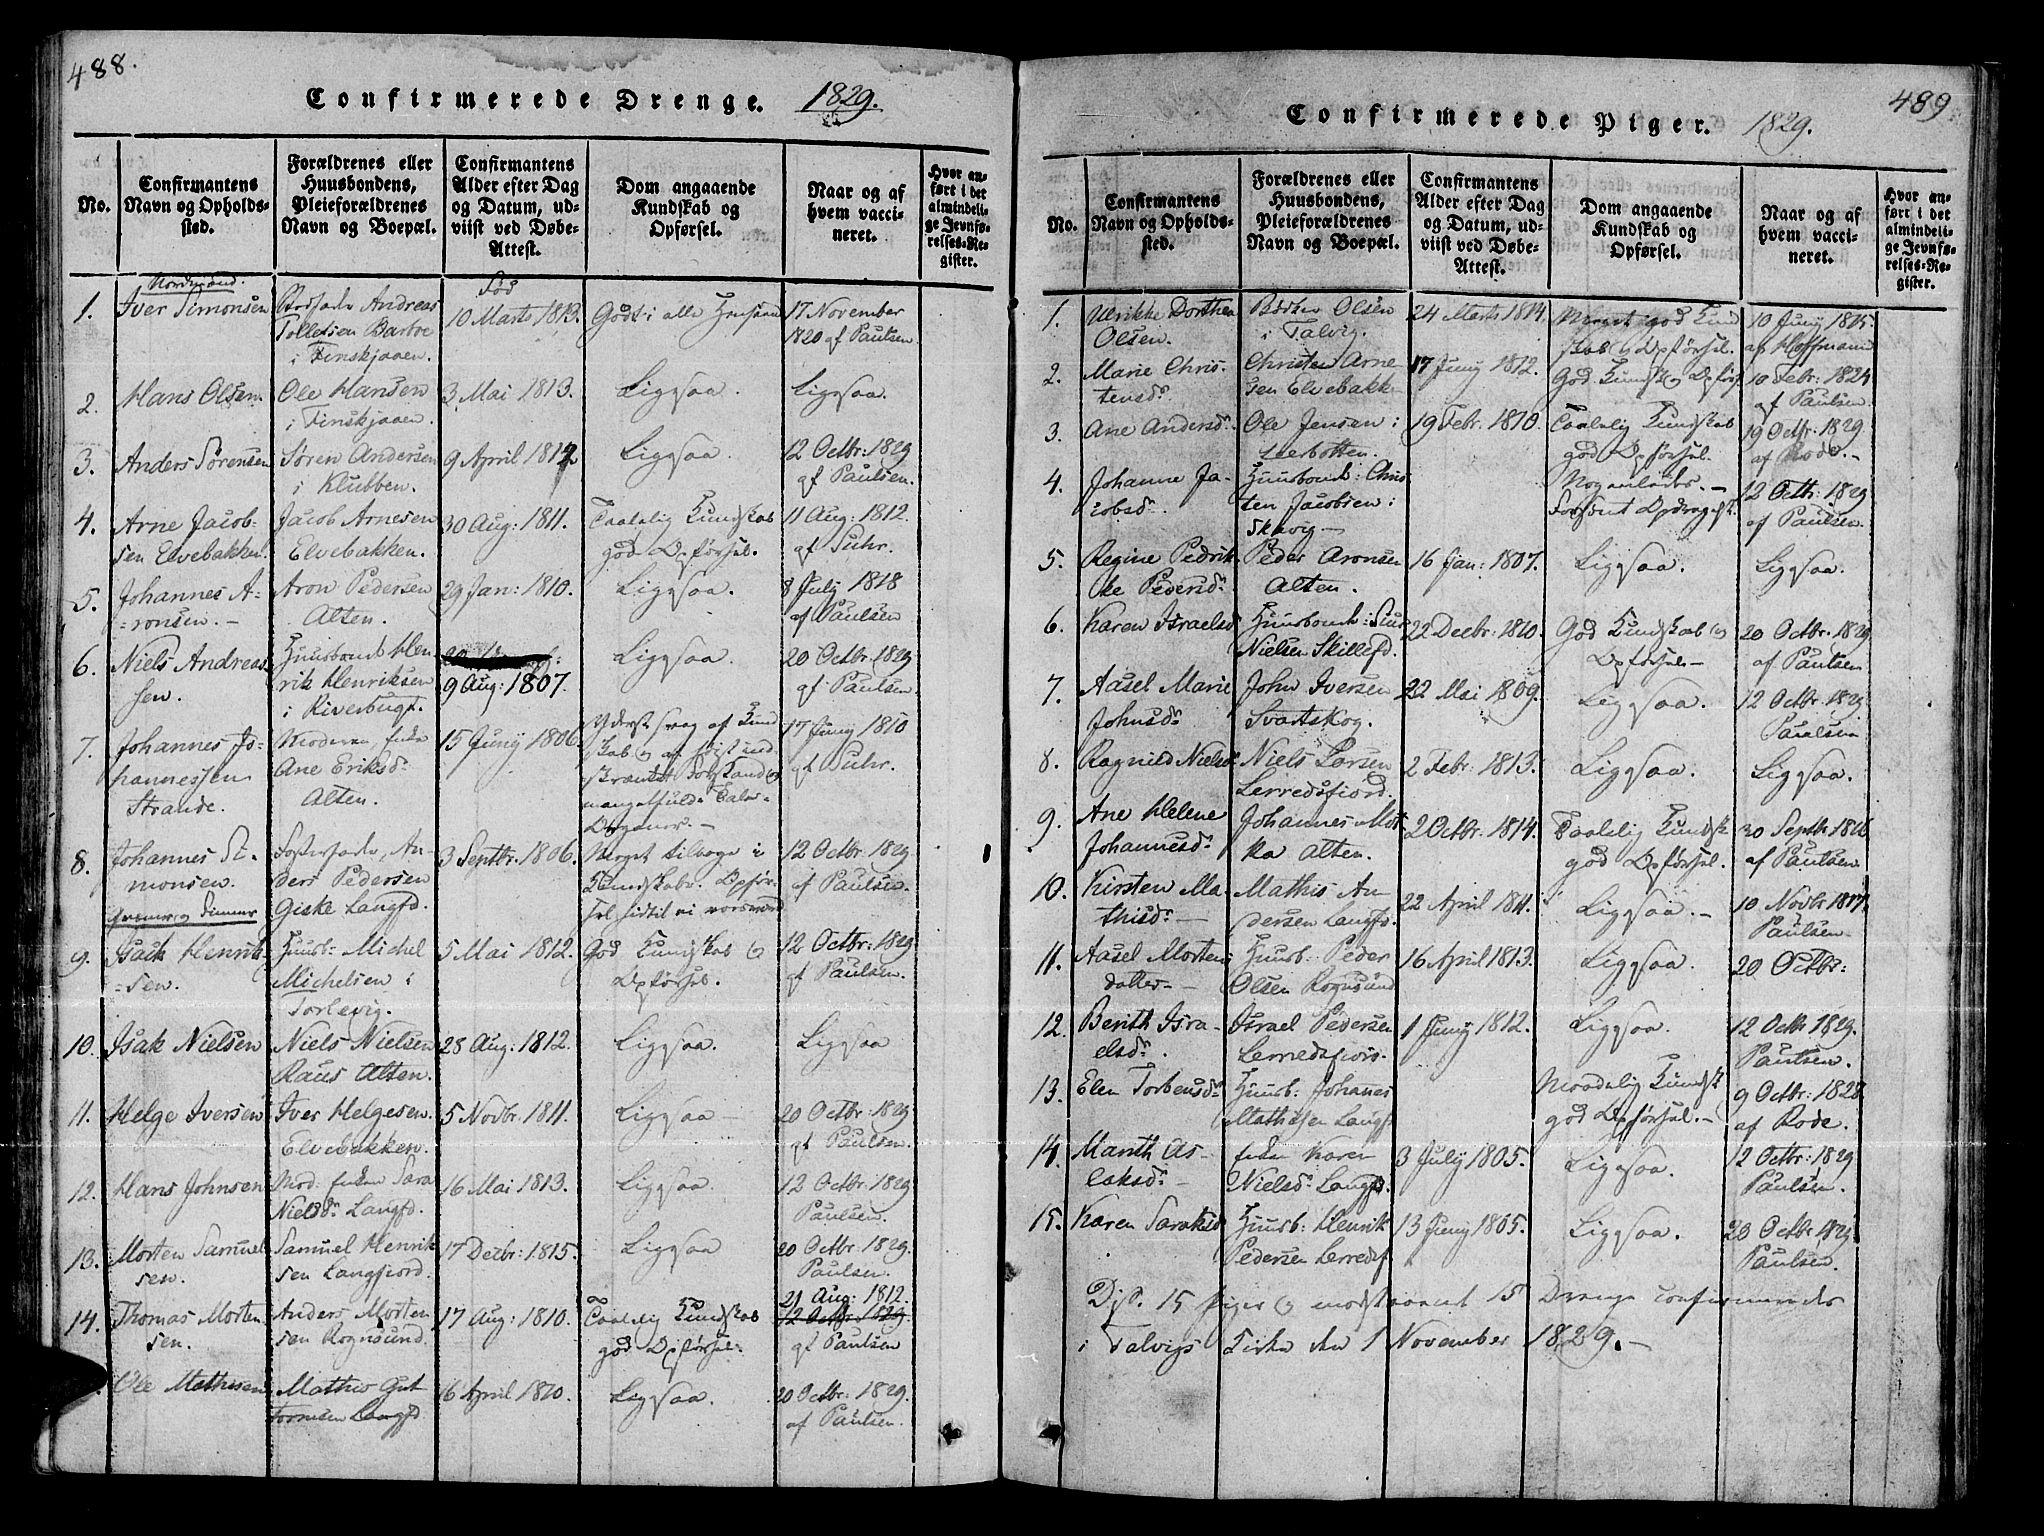 488.
Confirmerede Drenge. 1829.
No.
Confirmantens
Navn og Opholds-
sted.
Forældrenes eller
Huusbondens,
Pleieforældrenes
Navn og Boepæl.
Confirmantens
Alder efter Dag
og Datum, ud-
viist ved Døbe-
Attest.
Dom angaaende
Kundskab og
Opførsel.
Naar og af
hvem vacci-
neret.
Hvor an-
ført i det
almindeli-
ge Jevnfø-
relses-Re-
gister.
Nordmænd.
1. Iver Simonsen
Andreas
Tollefsen
i Finskjaaen.
Fød
10 Marts 1813.
Godt i alle Henseen
17 November
1820 af Paulsen
2. Hans Olsen.
Ole Hansen
i Finskjaaen.
3 Mai 1813.
Ligesaa.
Ligesaa.
3. Anders Sørensen
Søren Andersen
i Klubben.
9 April 1812
Ligesaa.
12 Octbr: 1829
af Paulsen.
4. Arne Jacob-
sen Elvebakken.
Jacob Arnesen
Elvebakken.
30 Aug: 1811.
Taalelig Kundskab
god Opførsel.
11 Aug: 1812.
af Suhr.
5. Johannes A-
ronsen.
Aron Pedersen
Alten.
29 Jan: 1810.
Ligesaa.
8 July 1818
af Paulsen
6. Niels Andreas
sen.
Huusbond Hen
rik Henriksen
i Riverbugt.
9 Aug: 1807.
Ligesaa.
20 Octbr: 1829
af Paulsen
7. Johannes Jo-
hannessen
Strande.
Moderen, Enke
Ane Eriksd:
Alten.
15 Juny 1806.
Yderst svag af Kund
skab og af høist ind-
skrænket Forstand og
mangelfulde Tale-
Organer.
17 Juny 1810
af Suhr.
8. Johannes Si-
monsen.
Fosterfader, An-
ders Pedersen
Giske Langfd.
3 Septbr: 1806.
Meget tilbage i
Kundskabe. Opfør-
sel hidtil ei
12 Octbr: 1829
af Paulsen.
Qvæner og Finner
9. Isach Henrik-
sen.
Huusb: Michel
Michelsen i
Torlevig.
5 Mai 1812.
God Kundskab og
Opførsel.
12 Octbr: 1829
af Paulsen.
10. Isak Nielsen
Niels Nielsen
Raus Alten.
28 Aug: 1812.
Ligesaa.
Ligesaa
11. Helge Iversen
Iver Helgesen.
Elvebakken.
5 Novbr: 1811.
Ligesaa
20 Octbr: 1829
af Paulsen.
12. Hans Johnsen
Mod: Enken Sara
Nielsd: Langfd.
16 Mai 1813.
Ligesaa.
12 Octbr: 1829
Paulsen.
13. Morten Samuel
sen.
Samuel Henrik
sen Langfiord.
17 Decbr: 1815.
Ligesaa
20 Octbr: 1829.
Paulsen.
14. Thomas Morten
sen.
Anders Morten
sen Rognsund.
17 Aug: 1810.
Taalelig Kundskab
god Opførsel.
21 Aug: 1812.
12 Octbr: 1829.
af Paulsen
Ole Mathisen
Mathis Gut
tormsen Langfd
16 April 1810.
Ligesaa.
20 Octbr: 1829.
af Paulsen.
489
Confirmerede Piger. 1829.
No.
Confirmantens
Navn og Opholds-
sted.
Forældrenes eller
Huusbondens,
Pleieforældrenes
Navn og Boepæl.
Confirmantens
Alder efter Dag
og Datum, ud-
viist ved Døbe-
Attest.
Dom angaaende
Kundskab og
Opførsel.
Naar og af
hvem vacci-
neret.
Hvor an-
ført i det
almindeli-
ge Jevnfø-
relses-Re-
gister.
1. Ulrikke Dorthea
Olsen.
Bødker Olsen
i Talvig.
24 Marts 1814.
Meget god Kund
skab og Opførsel.
10 Juny 1815
af Hoffmann
2. Marie Chris-
tensd:
Christen Arne
sen Elvebakke
17 Juny 1812.
God Kundsk: og Opførs
10 Febr: 1824
af Paulsen.
3. Ane Andersd:
Ole Jensen i
Leerbotten.
19 Febr: 1810.
Taalelig Kundskab
god Opførsel.
19 Octbr: 1829
af Rode.
4. Johanne Ja-
cobsd:
Huusbond: Chris
ten Jacobsen i
Skavig
Nogenledes.
12 Octbr: 1829
af Paulsen.
5. Regine Pedrik-
ke Pedersd:
Peder Aronsen
Alten.
16 Jan: 1807.
Ligesaa.
Ligesaa.
6. Karen Israelsd
Huusbond: Siur
Nielsen Skillefd.
22 Decbr: 1810.
God Kundskab og
Opførsel.
20 Octbr: 1829
af Paulsen
7. Aasel Marie
Johnsd:
John Iversen
Svartskog.
22 Mai 1809.
Ligesaa.
12 Octbr: 1829.
Paulsen
8. Ragnild Nielsd:
Niels Larsen
Lerredsfiord.
2 Febr: 1813.
Ligesaa.
Ligesaa.
9. Ane Helene
Johannesd:
Johannes Mos
ka Alten.
2 Octbr: 1814.
Taalelig Kundsk:
god Opførsel.
30 Septbr 1816
af Paulsen.
10. Kirsten Ma-
thisd:
Mathis An
dersen Langfd.
22 April 1811.
Ligesaa.
10 Novbr 1817.
Paulsen
11. Aasel Mortens
datter
Huusb: Peder
Olsen Rognsund
16 April 1813.
Ligesaa.
20 Octbr:
12. Berith Isra-
elsd:
Israel Pedersen
Lerredsfiord.
1 Juny 1812.
Ligesaa.
12 Octbr 1829.
Paulsen.
13. Elen Torbensd:
Huusb: Johanes
Mathisen Langf
Maadelig Kundsk
god Opførsel.
9 Octbr: 1828
af Rode.
14. Marith As-
laksd:
Enken Karen
Nielsd: Langfd.
3 July 1805.
Ligesaa.
12 Octbr: 1829
Paulsen.
15. Karen Saraksd
Huusb: Henrik
Pedersen Lerredsf
13 Juny 1805.
Ligesaa.
20 Octbr: 1829.
Paulsen.
15 Piger og 15 Drenge confirmeredes
i Talvigs Kirke den 1 November 1829.